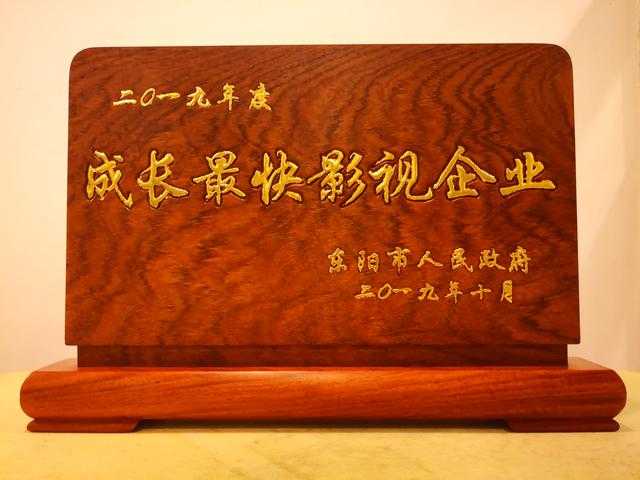 二〇一九年度
成长最快影视企业
东阳市人民政府
二〇一九年十月